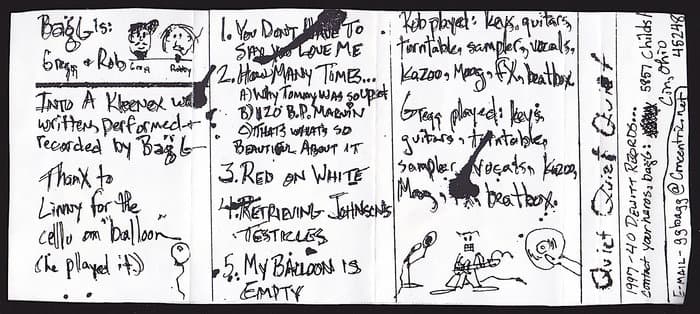 BagGls:
Gregg & Rob
INTO A KLEENEX was
written, performed +
recorded by BagGl
ThanX to
Linny for the
cello on "balloon"
(he played it.)
1. YOU DON'T HAVE TO
SAY YOU LOVE ME
2. HOW MANY TIMES...
A) WHY TOMMY WAS
B) 1120 B.P. MARVIN
C) THAT'S WHAT'S SO
BEAUTIFUL ABOUT IT
3. RED ON WHITE
4. RETRIEVING JOHNSON'S
TESTICLES
5. MY BALLOON IS
EMPTY
Rob played: keys, guitars,
turntable, sampler, vocals,
Kazoo, Moog, fx, beatbox
Gregg played: keys,
guitars, turntable,
sampler, vocals, Kazoo,
Moog, beatbox.
Quiet Quiet Quiet
1997-40 DEWITT RECORDS...
contact your heros, bagGl: 5867 Childs
Cin, Ohio
45248
E-MAIL- ggbagg@Concentric.net